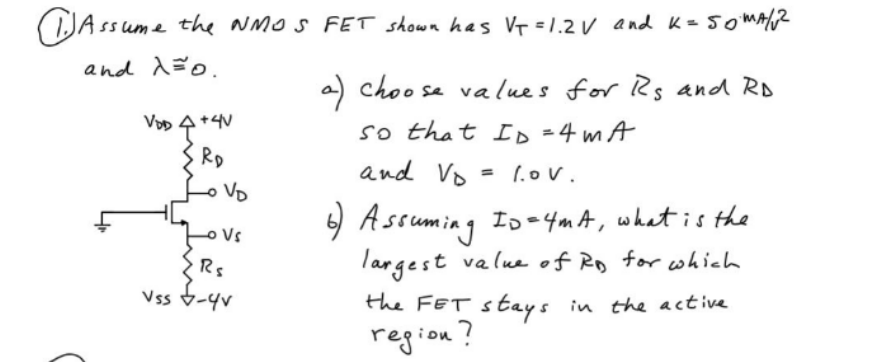 1.) Assume the NMOS FET shown has VT = 1.2V and K = 50 mA/V²
and λ ≅ 0.
a) Choose values for Rs and RD
so that ID = 4mA
and VD = 1.0V.
VDD +4V
RD
VD
Vs
Rs
Vss -4V
b) Assuming ID = 4mA, what is the
largest value of RD for which
the FET stays in the active
region?